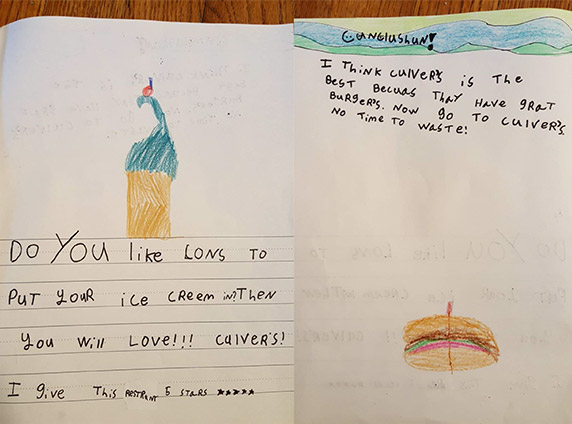 DO YOU like LONS TO
PUT YOUR ice CReem in?Then
YOU will LOVE!!! CULVER'S!
I give This RESTRUNT 5 STARS ★★★★★
CANGLUSHUN!
I Think CULVER'S is The
BEST BECUAS THAY HAVE gRAT
BURGER'S. NOW GO TO CULVER'S
NO TIME TO WASTE!